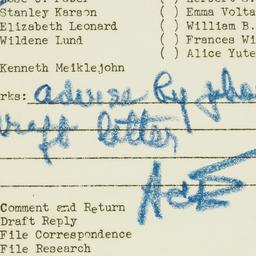 Stanley Karson ( ) Emma Volta
Elizabeth Leonard ( ) William B.
Wildene Lund ( ) Frances Wi
( ) Alice Yute
Kenneth Meiklejohn
rks: advise by pho
raft letter
Comment and Return
Draft Reply
File Correspondence
File Research